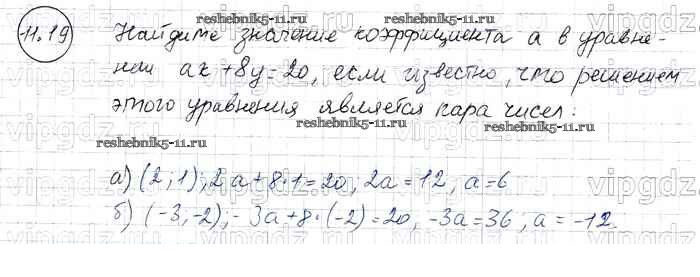 reshebnik5-11.ru
11.19 Найдите значение коэффициента a в уравне-
нии ax + 8y = 20, если известно, что решением
этого уравнения является пара чисел:
reshebnik5-11.ru reshebnik5-11.ru
а) (2; 1); 2a + 8·1 = 20, 2a = 12, a = 6
б) (-3; -2); -3a + 8·(-2) = 20, -3a = 36; a = -12.
reshebnik5-11.ru